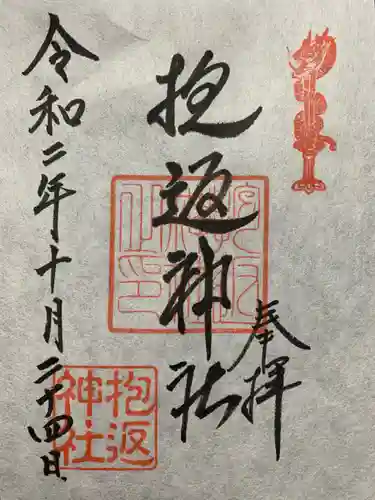 奉拝
抱返神社
令和二年十月二十四日
抱返
神社